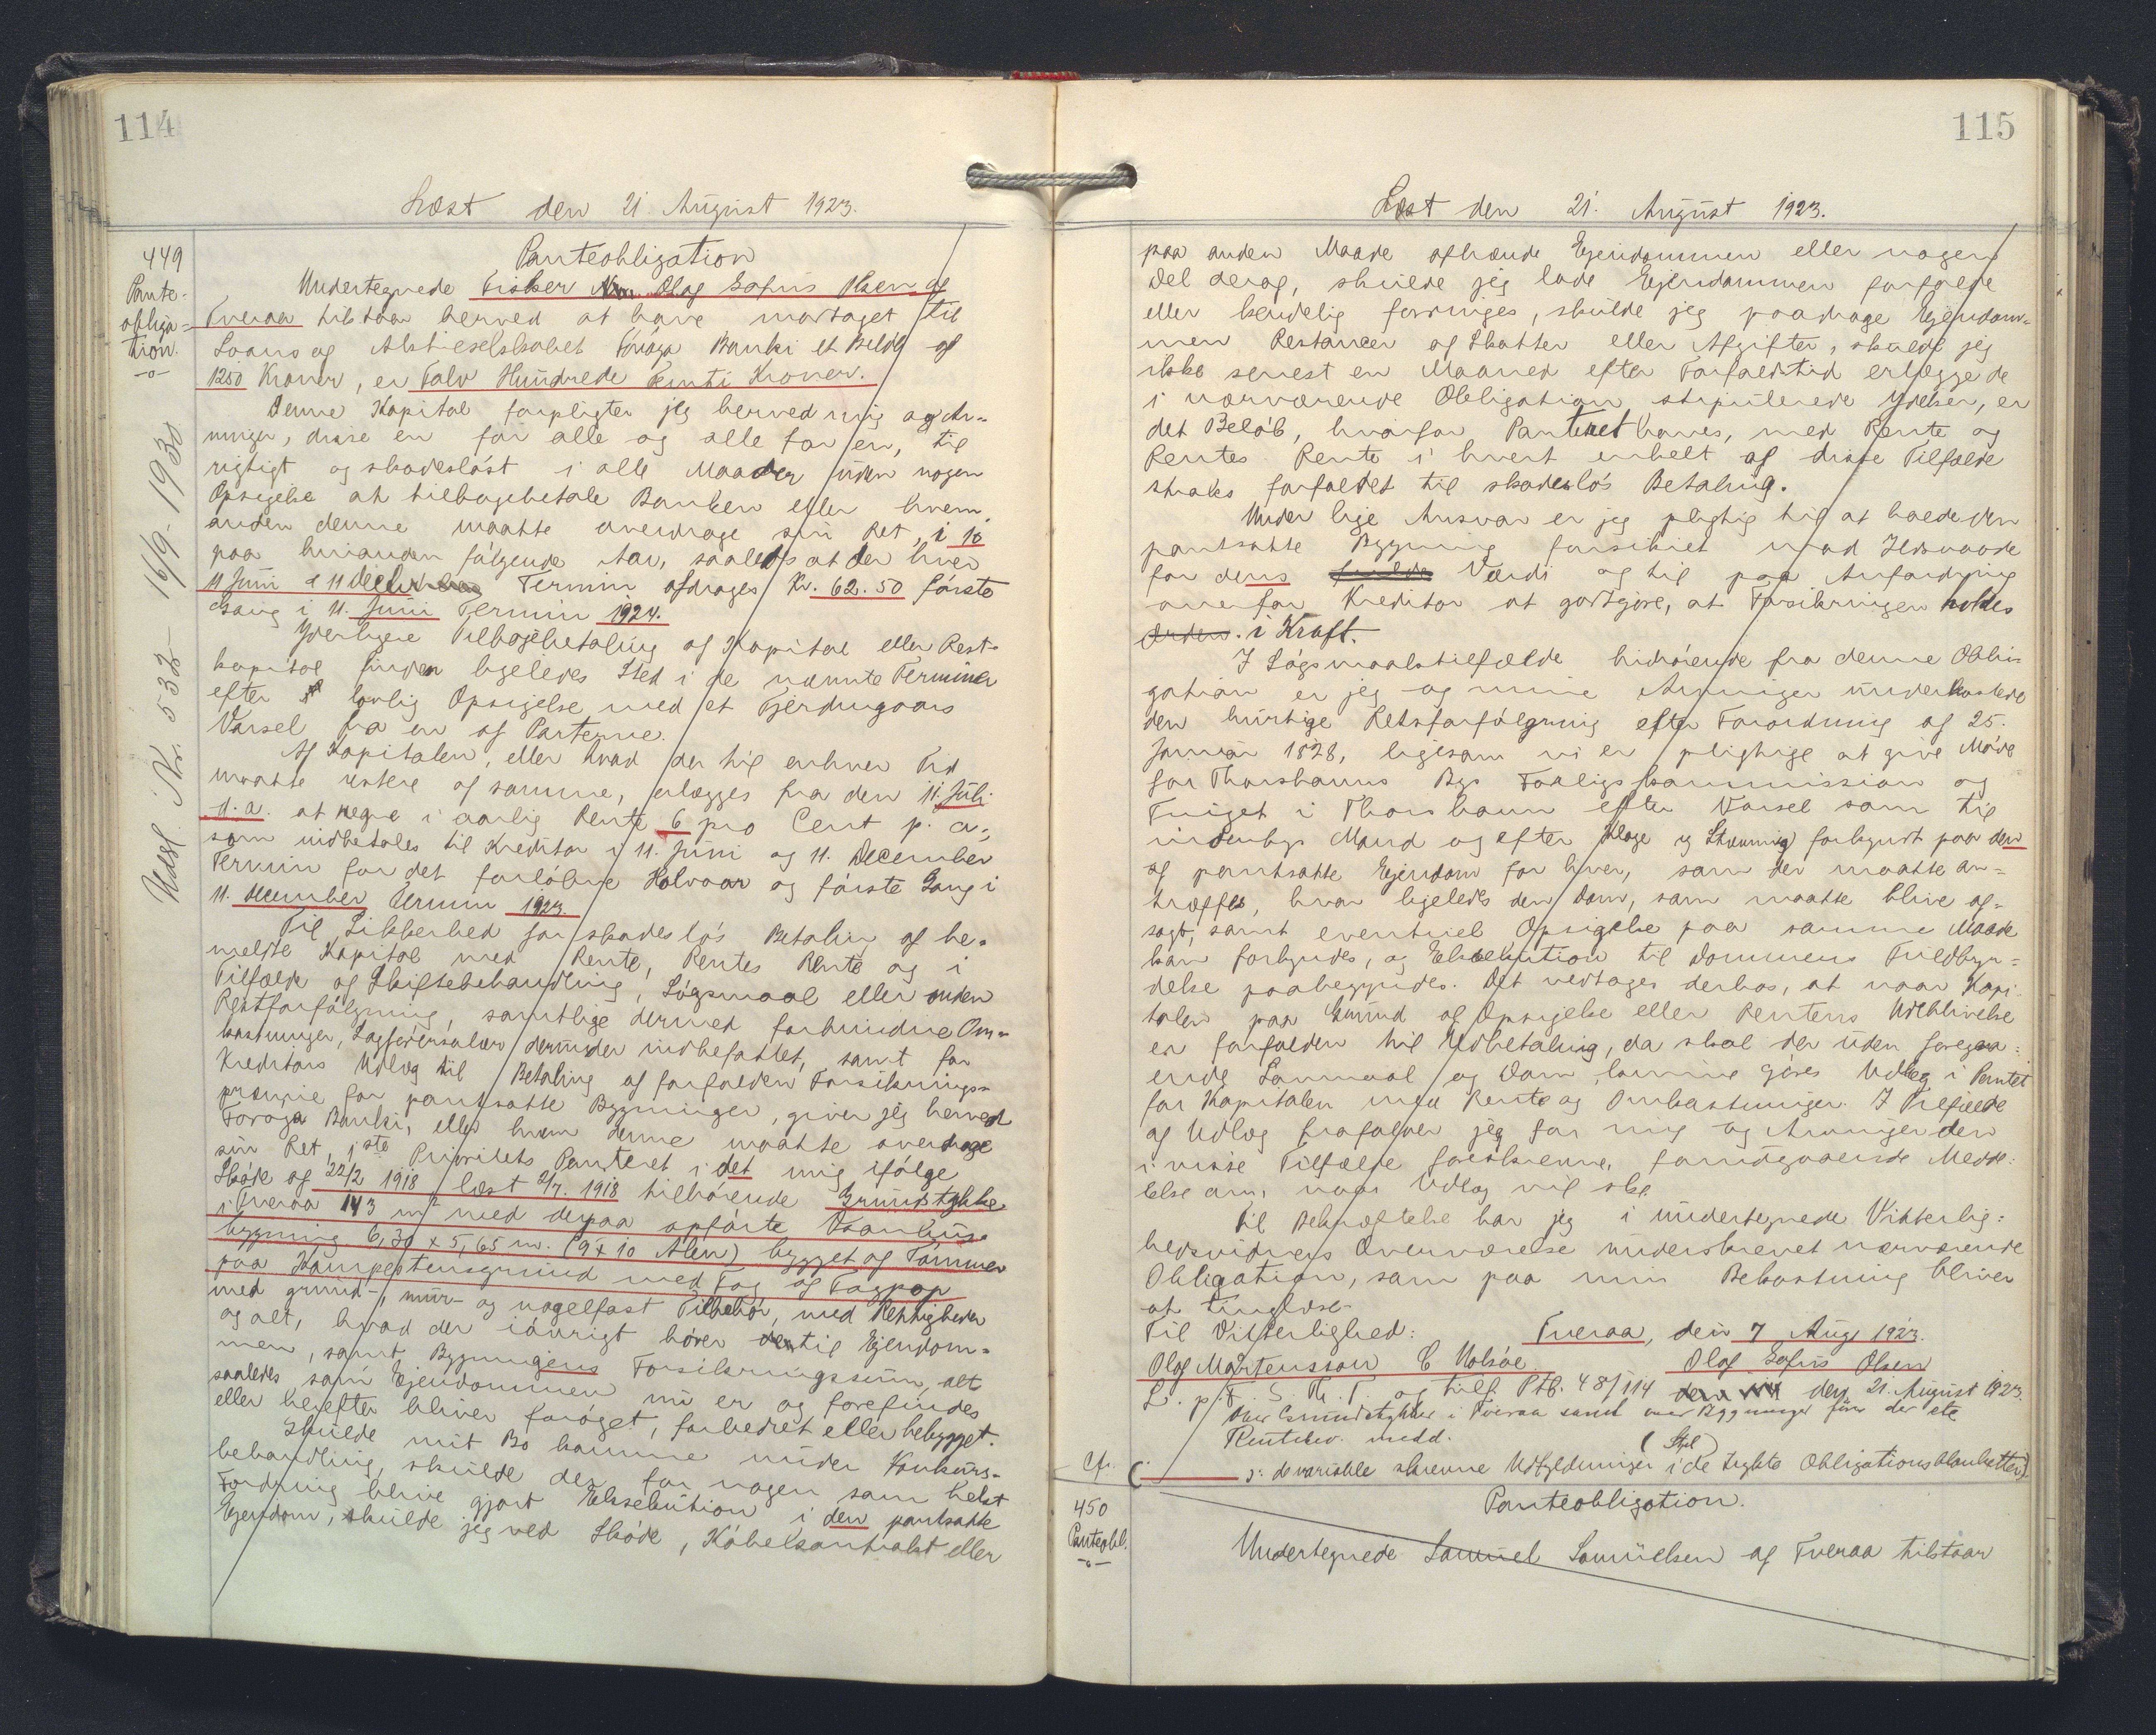 114
Læst den 21. August 1923.
449
Pante-
obliga-
tion.
Udsl. Nr. 532 - 16/9 - 1930
Panteobligation
Undertegnede Fisker Olaf Sofus Olsen af
Tveraa tilstaar herved at have modtaget til
Laans af Aktieselskabet Föroya Banki et Beløb af
1250 Kroner, er Tolv Hundrede Femti Kroner.
Denne Kapital forpligter jeg herved mig og Ar-
vinger, disse en for alle og alle for en, til
rigtigt og skadesløst i alle Maader uden nogen
Opsigelse at tilbagebetale Banken eller hvem
anden denne maatte overdrage sin Ret, i 10
paa hinanden følgende Aar, saaledes at der hver
11 Juni & 11 decbr Termin afdrages Kr. 62.50 første
Gang i 11. Juni Termin 1924.
Yderligere Tilbagebetaling af Kapital eller Rest-
kapital finder ligeledes Sted i de nævnte Terminer
efter lovlig Opsigelse med et Fjerdingaars
Varsel fra en af Parterne.
Af Kapitalen, eller hvad der til enhver Tid
maatte restere af samme, erlægges fra den 11. Juli
d. a. at regne i aarlig Rente 6 pro Cent p. a.,
som indbetales til Kreditor i 11. Juni og 11. December
Termin for det forløbne Halvaar og første Gang i
11. December Termin 1923.
Til Sikkerhed for skadesløs Betaling af be-
meldte Kapital med Rente, Rentes Rente og i
Tilfælde af Skiftebehandling, Søgsmaal eller anden
Retsforfølgning, samtlige dermed forbundne Om-
kostninger, Sagførersalær derunder indbefattet, samt for
Kreditors Udlæg til Betaling af forfalden Forsikrings-
præmie for pantsatte Bygninger, giver jeg herved
Föroya Banki, eller hvem denne maatte overdrage
sin Ret, 1ste Prioritets Panteret i det mig ifølge
Skøde af 22/2 1918 læst 2/7. 1918 tilhørende Grundstykke
i Tveraa 143 m² med derpaa opførte Vaanhus-
bygning 6,30 x 5,65 m. (9 x 10 Alen) bygget af Tømmer
paa Kampestensgrund med Tag af Tagpap
med grund-, mur- og nagelfast Tilbehør, med Rettigheder
og alt, hvad der iøvrigt hører til Ejendom-
men, samt Bygningens Forsikringssum, alt
saaledes som Ejendommen nu er og forefindes
eller herefter bliver forøget, forbedret eller bebygget.
Skulde mit Bo komme under Konkurs-
behandling, skulde der for nogen som helst
Fordring blive gjort Eksekution i den pantsatte
Ejendom, skulde jeg ved Skøde, Købekontrakt eller
115
Læst den 21. August 1923.
paa anden Maade afhænde Ejendommen eller nogen
Del deraf, skulde jeg lade Ejendommen forfalde
eller kendelig forringes, skulde jeg paadrage Ejendom-
men Restancer af Skatter eller Afgifter, skulde jeg
ikke senest en Maaned efter Forfaldstid erlægge de
i nærværende Obligation stipulerede Ydelser, er
det Beløb, hvorfor Panteret haves, med Rente og
Rentes Rente i hvert enkelt af disse Tilfælde
straks forfaldet til skadesløs Betaling.
Under lige Ansvar er jeg pligtig til at holde den
pantsatte Bygning forsikret mod Ildsvaade
for dens fulde Værdi og til paa Anfordring
overfor Kreditor at godtgøre, at Forsikringen holdes
i Kraft.
I Søgsmaalstilfælde hidrørende fra denne Obli-
gation er jeg og mine Arvinger underkastede
den hurtige Retsforfølgning efter Forordning af 25.
Januar 1828, ligesom vi er pligtige at give Møde
for Thorshavns Bys Forligskommission og
Tinget i Thorshavn efter Varsel som til
indenbys Mand og efter Klage og Stævning forkyndt paa den
af pantsatte Ejendom for hver, som der maatte an-
træffes, hvor ligeledes den Dom, som maatte blive af-
sagt, samt eventuel Opsigelse paa samme Maade
kan forkyndes, og Eksekution til Dommens Fuldbyr-
delse paabegyndes. Det vedtages derhos, at naar Kapi-
talen paa Grund af Opsigelse eller Rentens Udeblivelse
er forfalden til Udbetaling, da skal der uden foregaa-
ende Lovmaal og Dom kunne gøres Udlæg i Pantet
for Kapitalen med Rente og Omkostninger. I Tilfælde
af Udlæg frafalder jeg for mig og Arvinger den
i visse Tilfælde foreskrevne, forudgaaende Medde-
lelse om, naar Udlæg vil ske.
Til Bekræftelse har jeg i undertegnede Vitterlig-
hedsvidners Overværelse underskrevet nærværende
Obligation, som paa min Bekostning bliver
at tinglæse.
Til Vitterlighed: Tveraa, den 7 Aug. 1923.
Olaf Mortensson C Holsøe. Olaf Sofus Olsen
L. p. F. S. Th. T. og tilf. Ptb. 48/114 den 21. August 1923.
Over Grundstykker i Tveraa samt over Bygninger
medd.
Cfr. ( ɔ: de variable skrevne Udfyldninger i de trykte Obligationsblanketter).
450
Panteobl.
Panteobligation.
Undertegnede Samuel Samuelsen af Tveraa tilstaar